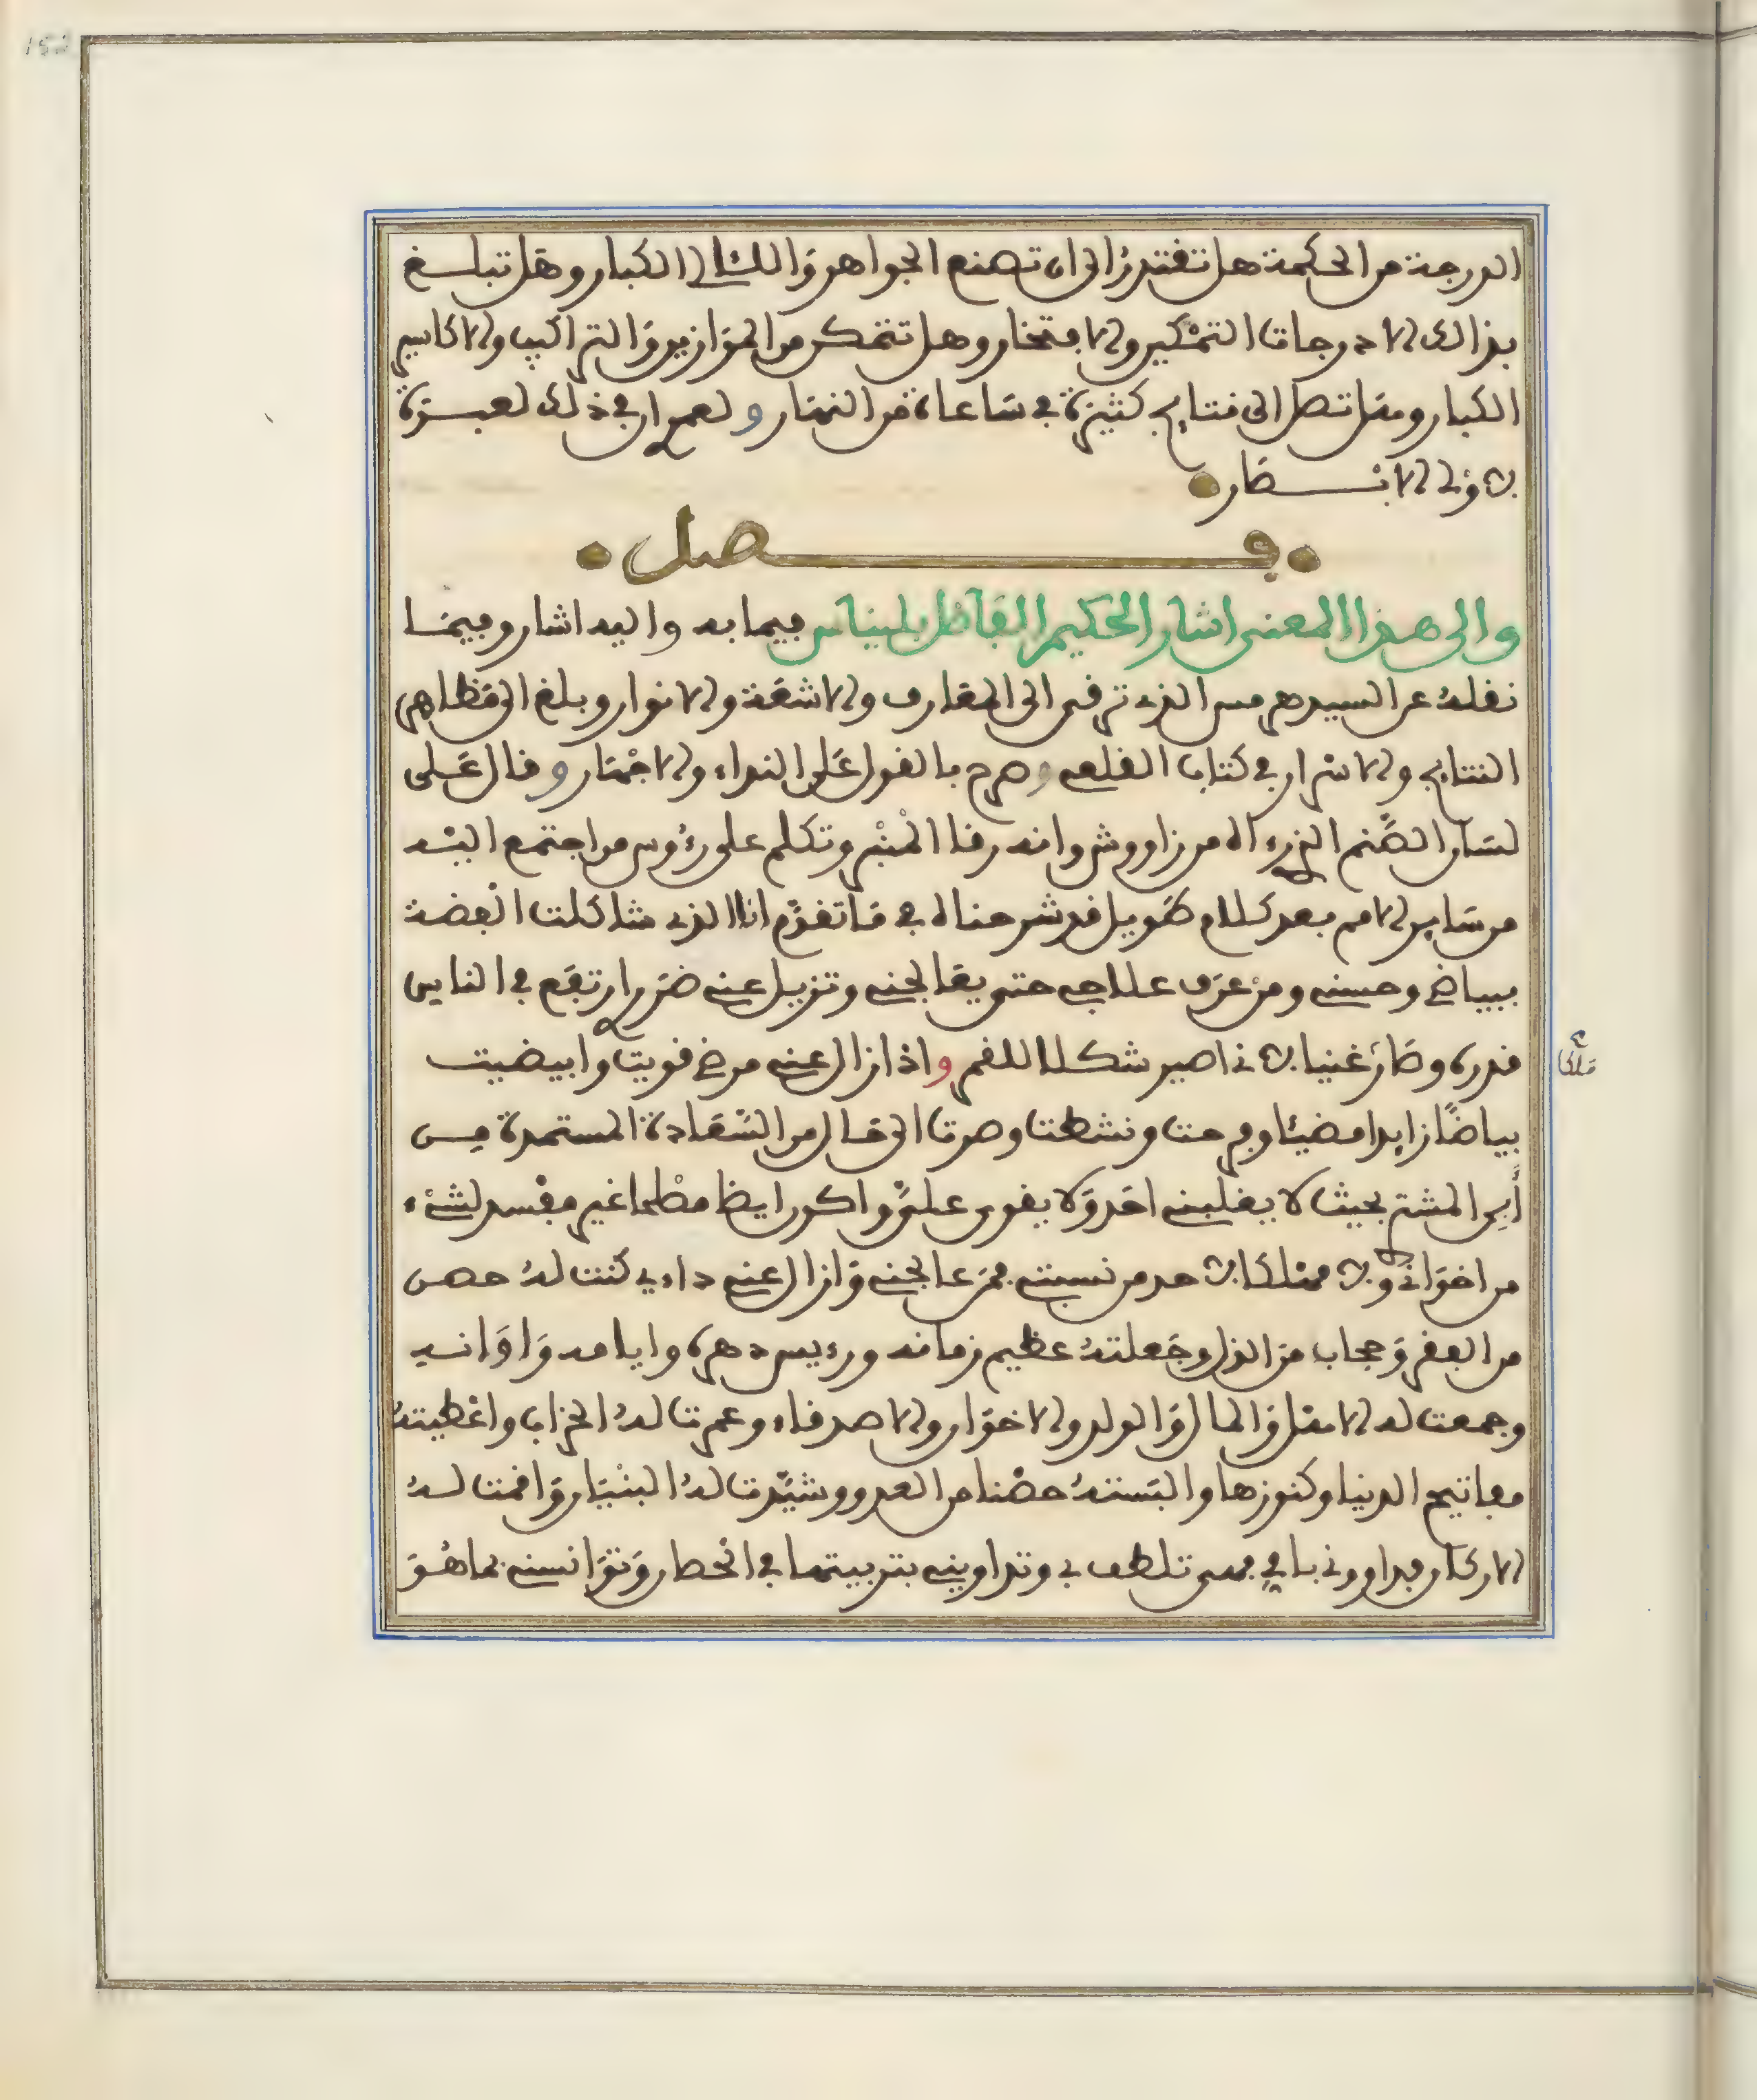 الدرجة من الحكمة هل تقتدر الى ان تصنع الجواهر واللئالئ الكبار وهل تبلغ
بذالك الادرجات التمكين والافتخار وهل تتمكن من الموازين والتراكيب والاكاسير
الكبار وهل تصل الى نتايج كثيرة في ساعات من النهار ولعمر ان في ذلك لعبرة
لاولى الابصار
فصل
والى هذا المعنى اشار الحكيم الفاضل بليناس فيما به واليه اشار وفيما
نقله عن السيد هرمس الذي ترقى الى المعارف والاشعة والانوار وبلغ الى مظاهر
النتايج والاسرار في كتاب الفلعي وصرح بالقول على النداء والاجهار وقال على
لسان الصنم الذي اله من زاووش وانه رقا المنبر وتكلم على رءوس من اجتمع اليه
من ساير الامم بعد كلام طويل قد شرحناه في ما تقدم انا الذي شاكلت الفضة
ببياضي وحسني ومن عرف علاجي حتى يعالجني وتزيل عني ضرر ارتفع في الناس
قدره وصار غنيا لانى اصير شكلا للقمر واذا زال عني مرضي قويت وابيضيت
ملاكا
بياضا زايدا مضيئا وفرحت ونشطت وصرت الى حال من السعادة المستمدة من
أبى المشتري بحيث لا يغلبني احد ولا يقوى علي واكون ايضا مصلحا غير مفسد لشيء
من اخواني ولا مهلكا لاحد من نسبتي فمن عالجني وازال عني داءي كنت له حصن
من الفقر وحجاب من الذل وجعلته عظيم زمانه ورءيس دهره وايامه واوانه
وجمعت له الاهل والمال والولد والاخوان والاصدقاء وعمرت له الخراب واعطيته
مفاتيح الدنيا وكنوزها والبسته حصنا من العدو وشيدت له البنيان واقمت له
الاركان فداووني باخي فهي تلطف بي وتداويني بتربيتها في الحضان وتؤانسني بما هو